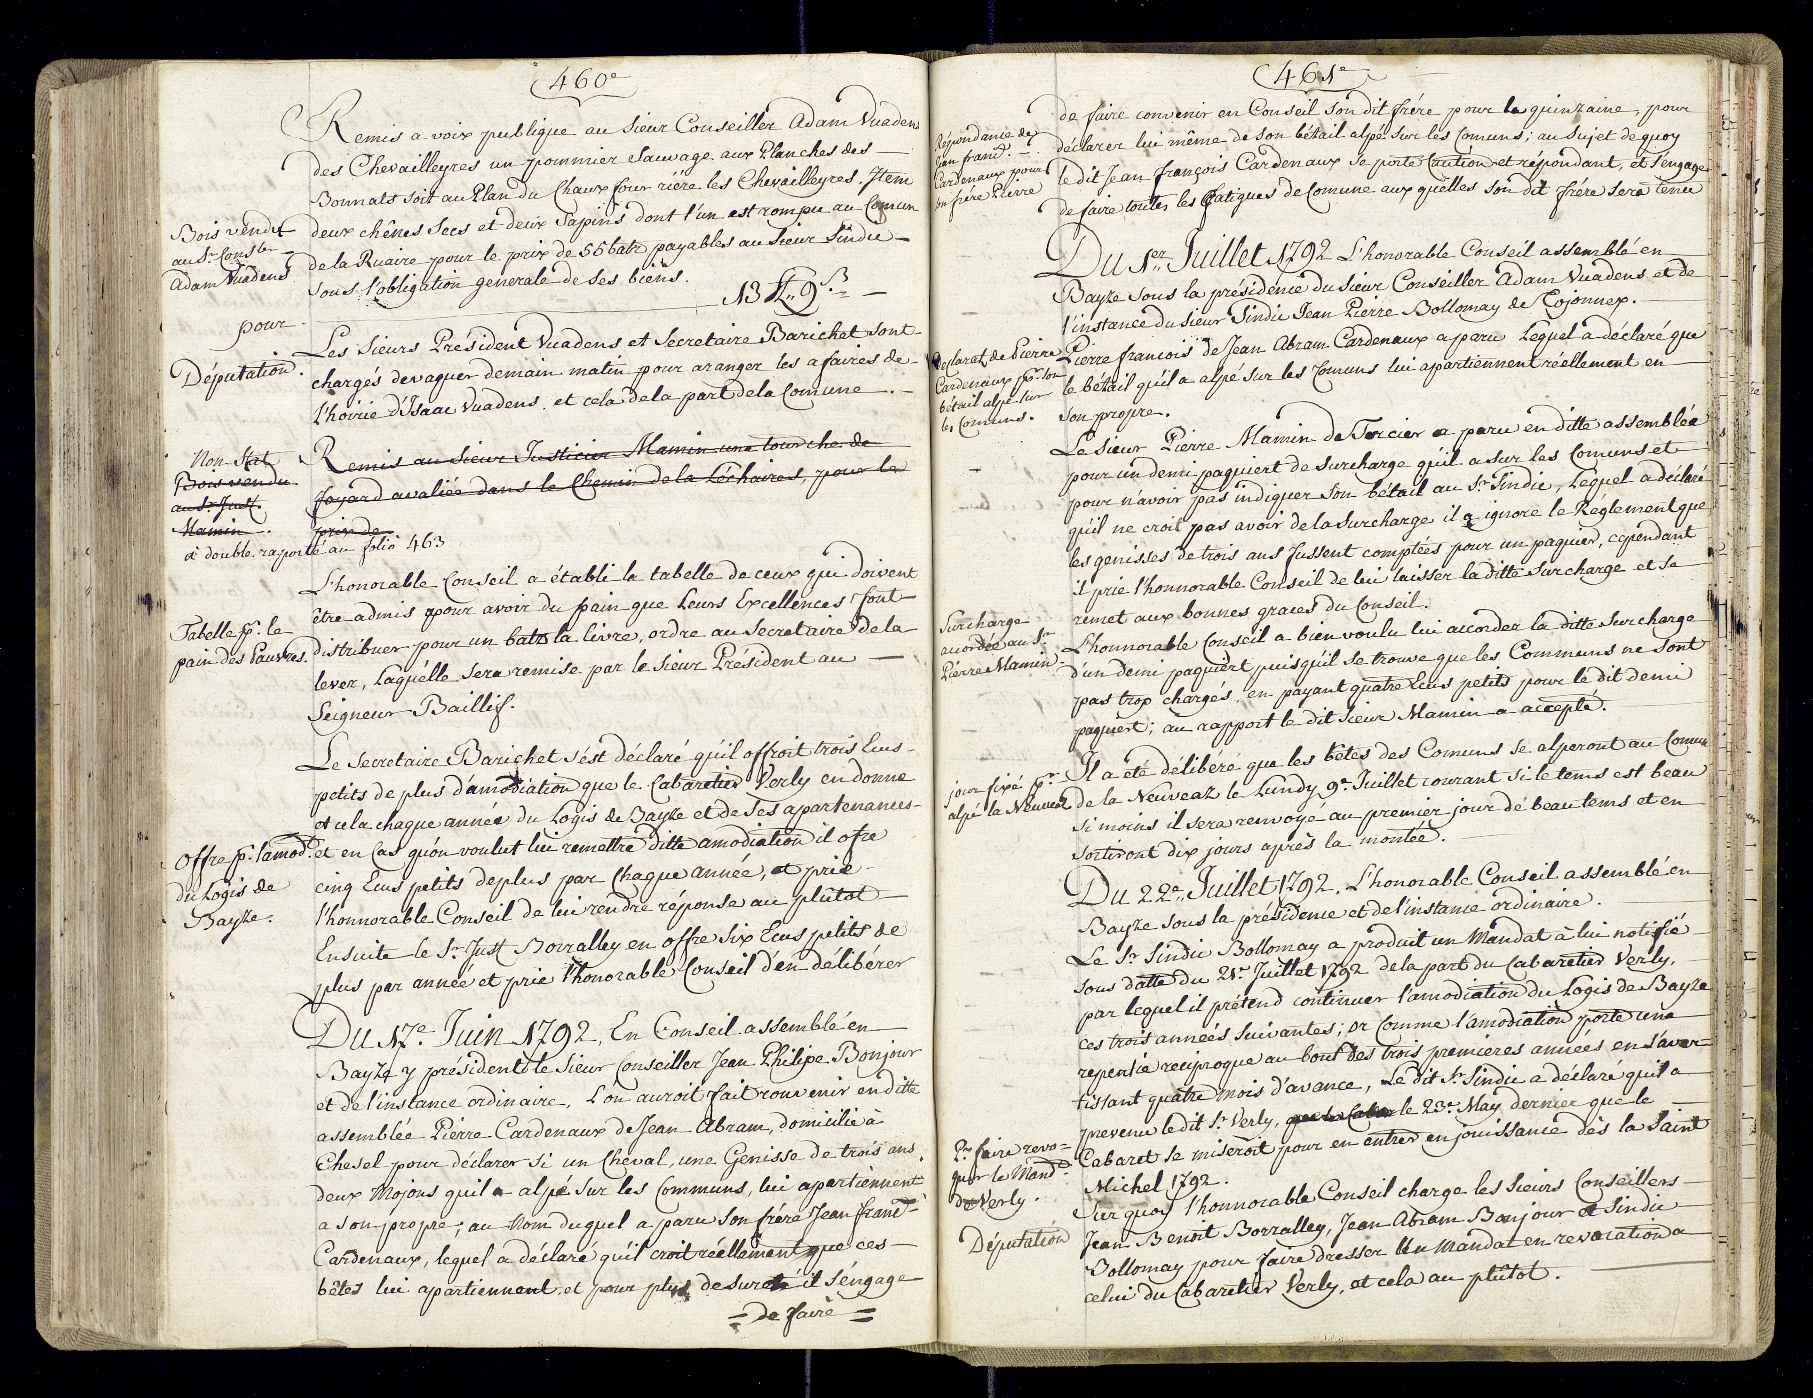 460e
Remis a voix publique au Sieur Conseiller Adam Vuadens
des Chevailleyres un pommier Sauvage aux Planches des
Bonnats soit au Plan du Chaux four riére les Chevailleyres, Item
deux chênes Secs et deux Sapins dont l'un est rompu au Comun
Bois vendu
au Sr. Consler
Adam Vuadens
de la Ruaire pour le prix de 55 batz payables au Sieur Sindic
sous l'obligation generale de ses biens.
13 L,, 9 ß
pour
Députation.
Les Sieurs Président Vuadens et Secretaire Barichet sont
chargés de vaquer demain matin pour aranger les afaires de
l'hoirie d'Isaac Vuadens, et cela de la part de la Comune.
Non Stat
Bois vendu
au Sr. Just.
Mamin.
Remis au Sieur Justicier Mamin une tourche de
foyard avaliée dans le Chemin de la Léchaires, pour le
prix de
à double raporté au folio 463
L'honorable Conseil a établi la tabelle de ceux qui doivent
être admis pour avoir du pain que Leurs Excellences font
Tabelle pr. le
pain des Pauvres.
distribuer pour un batz la livre, ordre au Secretaire de la
lever, Laquélle sera remise par le Sieur Président au
Seigneur Baillif.
Le Secretaire Barichet s'ést déclaré qu'il offroit trois Ecus
petits de plus d'amodiation que le Cabaretier Verly en donne
et cela chaque année du Logis de Bayze et de ses apartenances
Offre pr. l'amodn.
du Logis de
Bayze.
et en Cas qu'on voulut lui remettre ditte amodiation il ofre
cinq Ecus petits de plus par Chaque année, et prie
l'honnorable Conseil de lui rendre réponse au plûtot
Ensuite le Sr. Just. Borralley en offre Six Ecus petits de
plus par année et prie l'honorable Conseil d'en délibérer
Du 17e. Juin 1792, En Conseil assemblé en
Bayze y présidents le Sieur Conseiller Jean Philipe Bonjour
et de l'instance ordinaire, L'on auroit fait convenir en ditte
assemblée Pierre Cardenaux de Jean Abram, domicilié à
Chesel pour déclarer si un Cheval, une Genisse de trois ans,
deux Mojons qu'il a alpé sur les Communs, lui apartiennent
a son propre; au Nom duquel a paru son frére Jean franç.
Cardenaux, lequel a déclaré qu'il croit réellement que ces
bêtes lui apartiennent, et pour plus de sureté il s'éngage
= de faire =
461e
de faire convenir en Conseil son dit frére pour la quinzaine, pour
déclarer lui même de son bétail alpé sur les Comuns; au sujet de quoy
Répondance de
Jean franç.
Cardenaux pour
son frére Pierre
le dit Jean françois Cardenaux se porte Caution et répondant, et s'engage
de faire toutes les fatigues de Comune aux quélles son dit frére sera tenu
Du 1er Juillet 1792 L'honorable Conseil assemblé en
Bayze sous la présidence du Sieur Conseiller Adam Vuadens et de
l'instance du Sieur Sindic Jean Pierre Bollomay de Cojonnex.
Déclarat. de Pierre
Cardenaux pr. son
bétail alpé sur
les Comuns.
Pierre francois de Jean Abram Cardenaux a paru Lequel a déclaré que
le bétail qu'il a alpé sur les Comuns lui apartiennent réellement en
son propre.
Le Sieur Pierre Mamin de Tercier a paru en ditte assemblée
pour un demi paquiert de surcharge qu'il a sur les Comuns et
pour n'avoir pas indiquer son bétail au Sr. Sindic, Lequel a déclaré
qu'il ne croit pas avoir de la surcharge il a ignoré le Réglement que
les genisses de trois ans fussent comptées pour un paquier, cependant
il prie l'honnorable Conseil de lui laisser la ditte surcharge et se
remet aux bonnes graces du Conseil.
Surcharge
accordée au Sr.
Pierre Mamin
L'honnorable Conseil a bien voulu lui accorder la ditte surcharge
d'un demi paquiert puisqu'il se trouve que les Communs ne sont
pas trop chargés, en payant quatre Ecus petits pour le dit demi
paquiert; au rapport le dit Sieur Mamin a accepté.
jour fixé pr.
alpé la Neuveaz
Il a été délibéré que les bêtes des Comuns se alperont au Comun
de la Neuveaz le Lundy 9e. Juillet courant si le tems est beau
si moins il sera renvoyé au premier jour de beau tems et en
sortiront dix jours après la montée.
Du 22e,, Juillet 1792. L'honorable Conseil assemblé en
Bayze sous la présidence et de l'instance ordinaire.
Le Sr. Sindic Bollomay a produit un Mandat à lui notifié
sous datte du 21e. Juillet 1792 de la part du Cabaretier Verly,
par lequel il prétend continuer l'amodiation du Logis de Bayze
ces trois années suivantes; or Comme l'amodiation porte une
repentie réciproque au bout des trois premieres années en s'aver-
tissant quatre mois d'avance, Le dit Sr. Sindic a déclaré qu'il a
prevenu le dit Sr. Verly, le 23e May dernier que le
Pr. faire revo-
quer le Mandt.
de Verly.
Cabaret se miseroit pour en entrer en jouissance dès la Saint
Michel 1792.
Députation
Sur quoy l'honnorable Conseil charge les Sieurs Conseillers
Jean Benoit Borralley, Jean Abram Bonjour et Sindic
Bollomay pour faire dresser Un Mandat en revocation a
celui du Cabaretier Verly, et cela au plûtot.